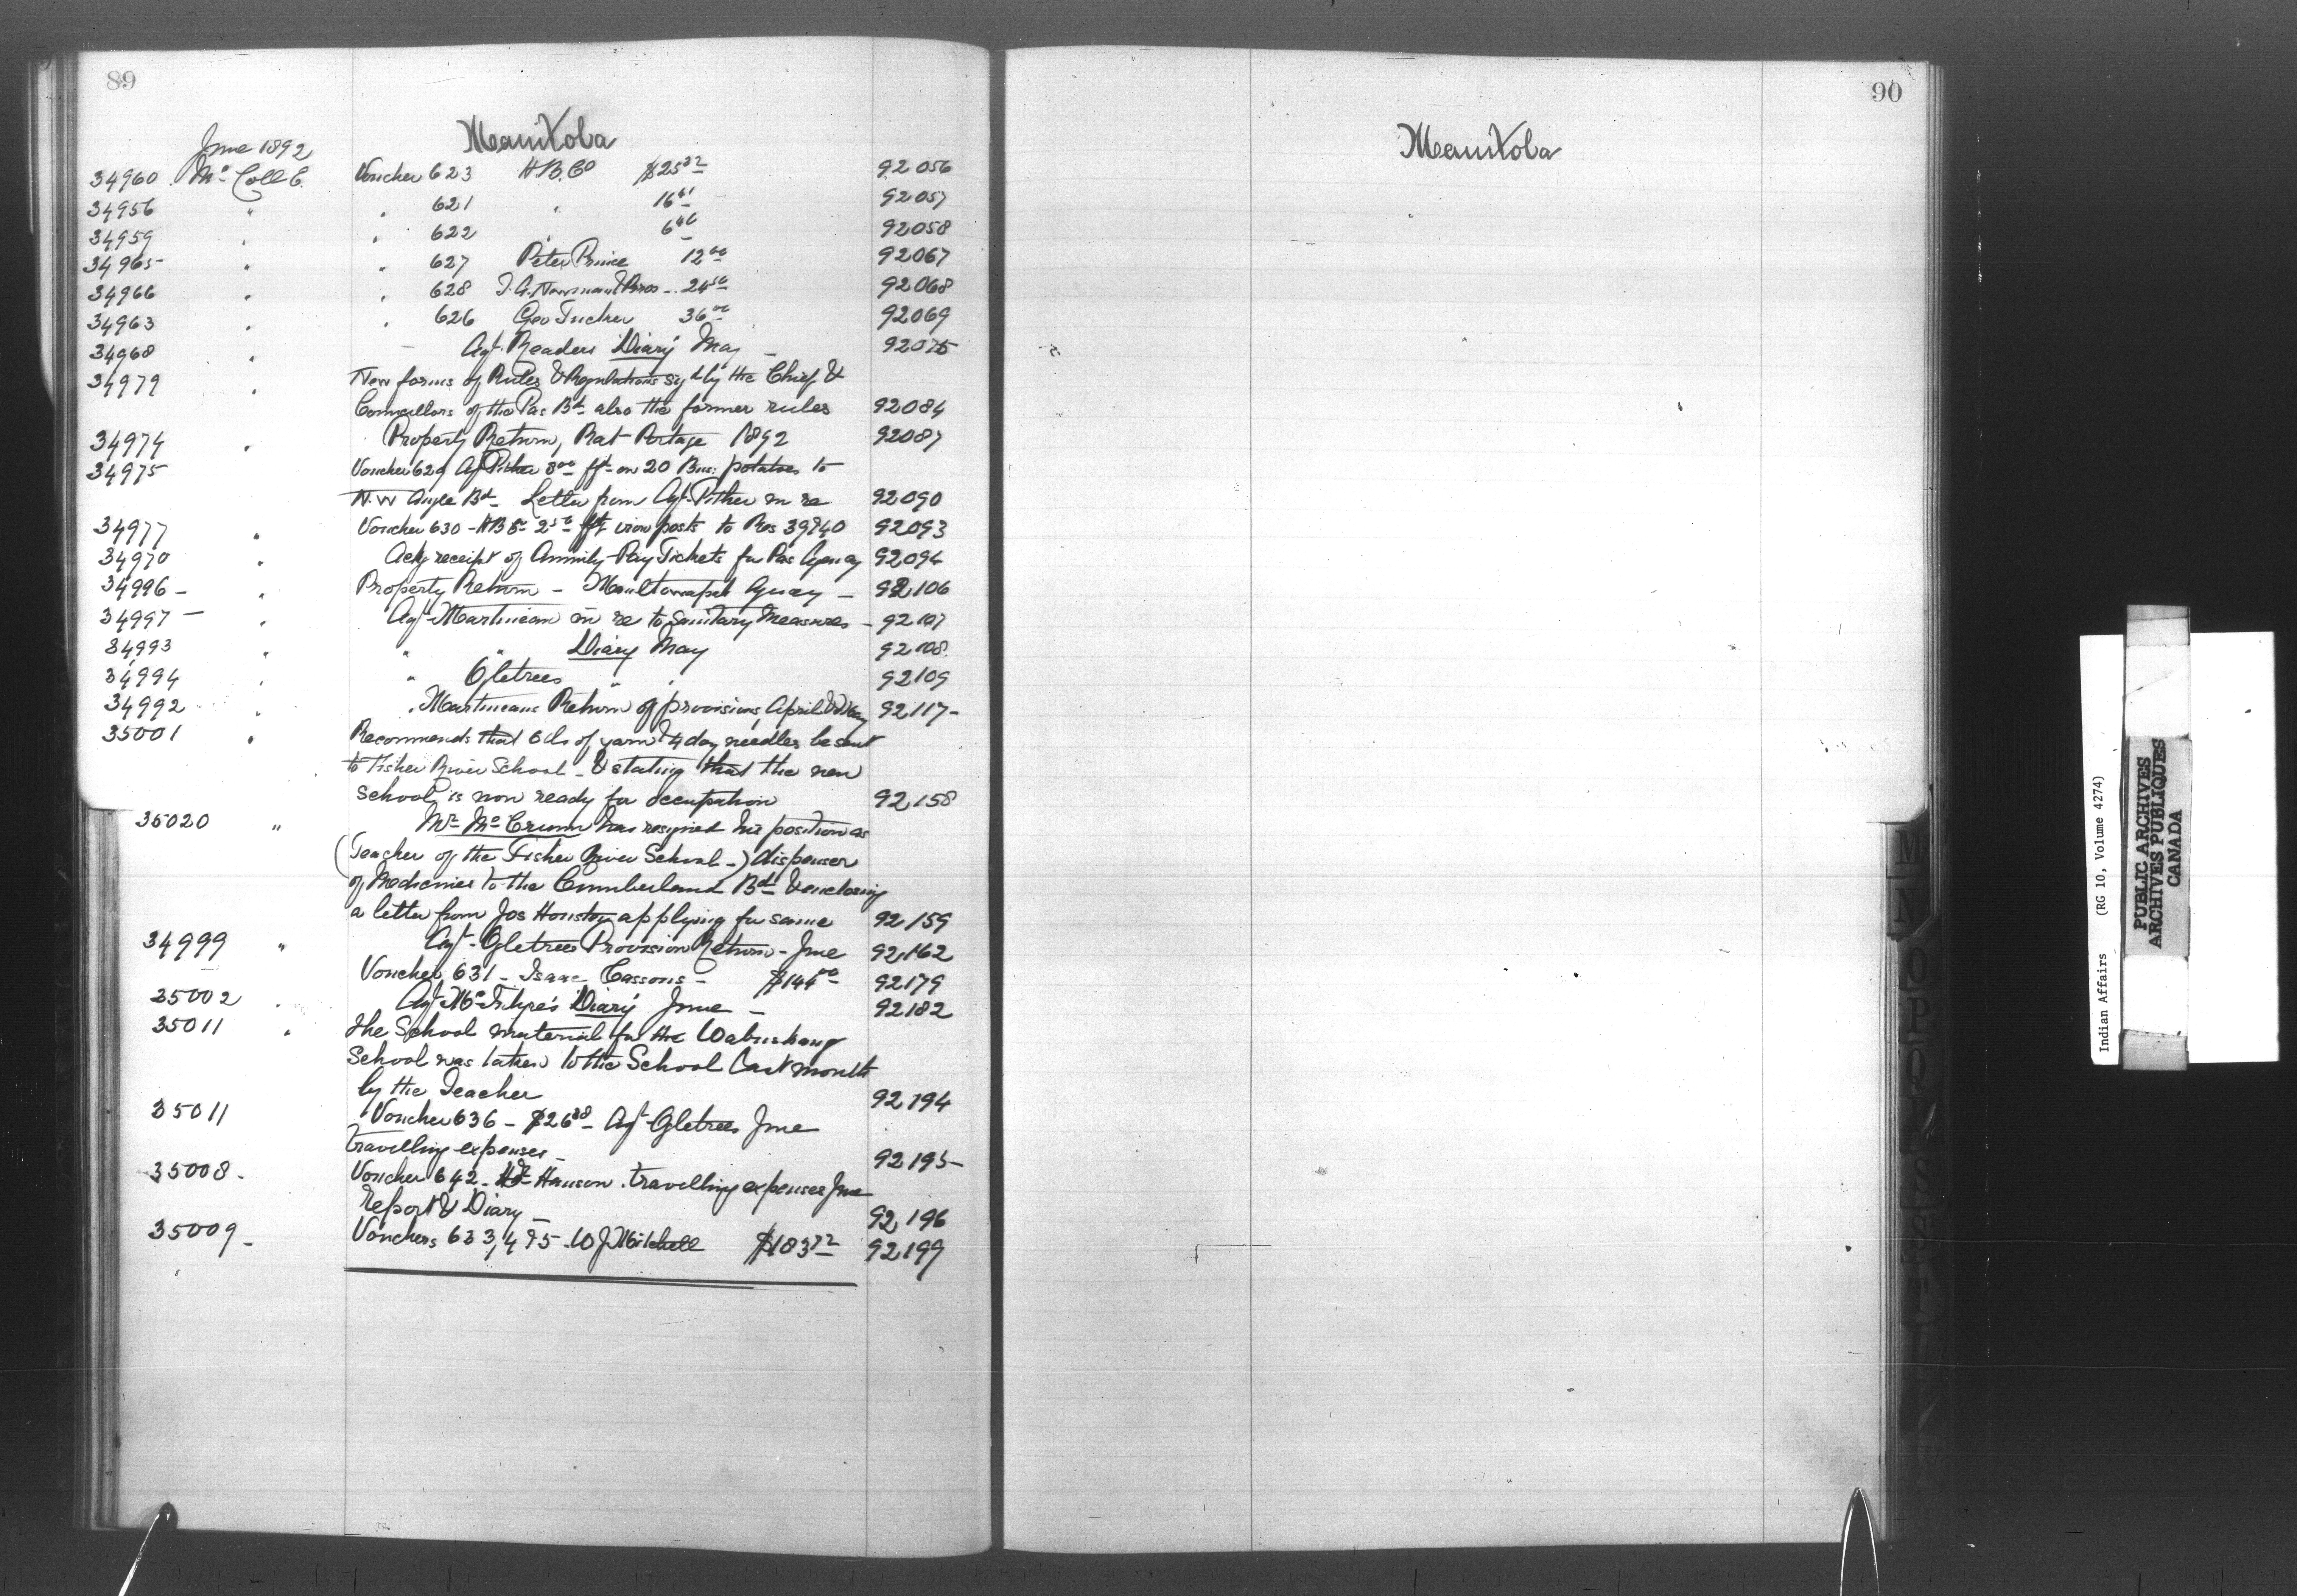 89
June 1892
Manitoba
34960 Mc Coll E. Voucher 623 H B. Co $25 32 92056
34956 " " 621 " 16 61 92057
34959 " " 622 " 6 46 92058
34965 " " 627 Peter Prince 12 00 92067
34966 " " 628 92068
34963 " " 626 Geo Tucker 36 00 92069
34968 " Agt. Readers Diary May 92075
34979 " New forms of Rules & Regulations sigd by the Chief &
Councillors of the Pas Bd also the former rules 92084
34974 " Property Return, Rat Portage 1892 92087
34975 Voucher 629 Agt Pither 8 00 fft on 20 Bus: potatoes to
N.W Angle Bd Letter from Agt. Pither in re 92090
34977 " Voucher 630 - H B Co 2 50 fft iron posts to Res 39 & 40 92093
34970 " Ackg receipt of Annuity Pay Tickets for Pas Agency 92094
34996 - " Property Return - Agency - 92,106
34997 - " Agt Martineau in re to Sanitary Measures - 92107
34993 " " " Diary May 92108
34994 " " Ogletrees " " 92109
34992 " " Martineaus Return of provisions, April & May 92,117-
35001 " Recommends that 6 lbs of yarn & 4 doz needles be sent
to Fisher River School - & stating that the new
school is now ready for occupation 92,158
35020 " Mr Mc Crumm has resigned his position as
(Teacher of the Fisher River School -) dispenser
of Medicines to the Cumberland Bd & enclosing
a letter from Jos Houston applying for same 92,159
34999 " Agt - Ogletrees Provision Return - June 92,162
Voucher 631 - Isaac Cassons - $144 00 92179
35002 " Agt Mc Intyre's Diary June - 92182
35011 " The School material for the Wabuskang
School was taken to the School last month
by the Teacher 92194
35011 Voucher 636 - $26 88 - Agt Ogletrees June
travelling expenses - 92195-
35008 - Voucher 642 - Hanson. travelling expenses June
Report & Diary - 92,196
35009 - Vouchers 633, 4 & 5 - W J Mitchell $183 72 92199
90
Manitoba
M
N
O
P
Q
R
S
Indian Affairs (RG 10, Volume 4274)
PUBLIC ARCHIVES
ARCHIVES PUBLIQUES
CANADA